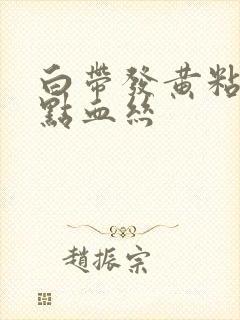 白帶發黃粘
點血絲
趙振宗